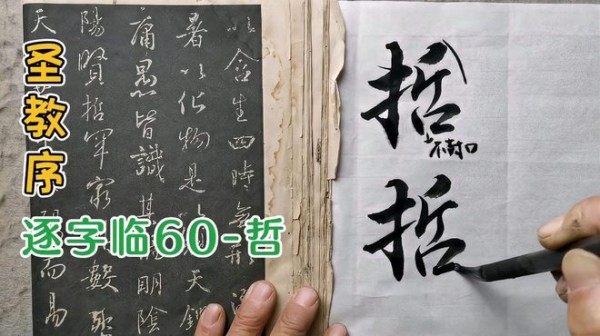 圣教序
逐字临60-哲
以含生四時無形潛
暑以化物是以天鑑
庸愚皆識其明陰
陽賢哲罕窮數
天而易
哲
不封口
哲